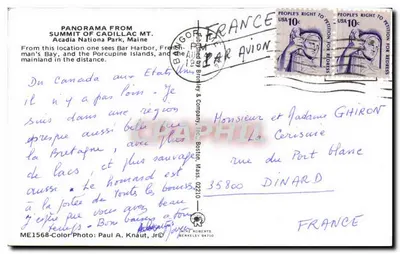 PANORAMA FROM
SUMMIT OF CADILLAC MT.
Acadia National Park, Maine
From this location one sees Bar Harbor, Fren
man's Bay, and the Porcupine Islands, and
mainland in the distance.
Du Canada aux Etats Unis
il n'y a pas loin. Je
suis dans une région
presque aussi belle que
la Bretagne, avec plus
de lacs, et plus sauvage
aussi. Le homard est
à la portée de toutes les bourses
J'espère que vous avez beau
temps. Bons baisers à tous
ME1568-Color Photo: Paul A. Knaut, Jr©
Berkeley & Boston, Mass. 02210
BANGOR
PM
FRANCE
PAR AVION
USA 10c
PEOPLE'S RIGHT TO PETITION FOR REDRESS
USA 10c
PEOPLE'S RIGHT TO PETITION FOR REDRESS
Monsieur et Madame GHIRON
La Cerisaie
rue du Port blanc
35800 DINARD
FRANCE